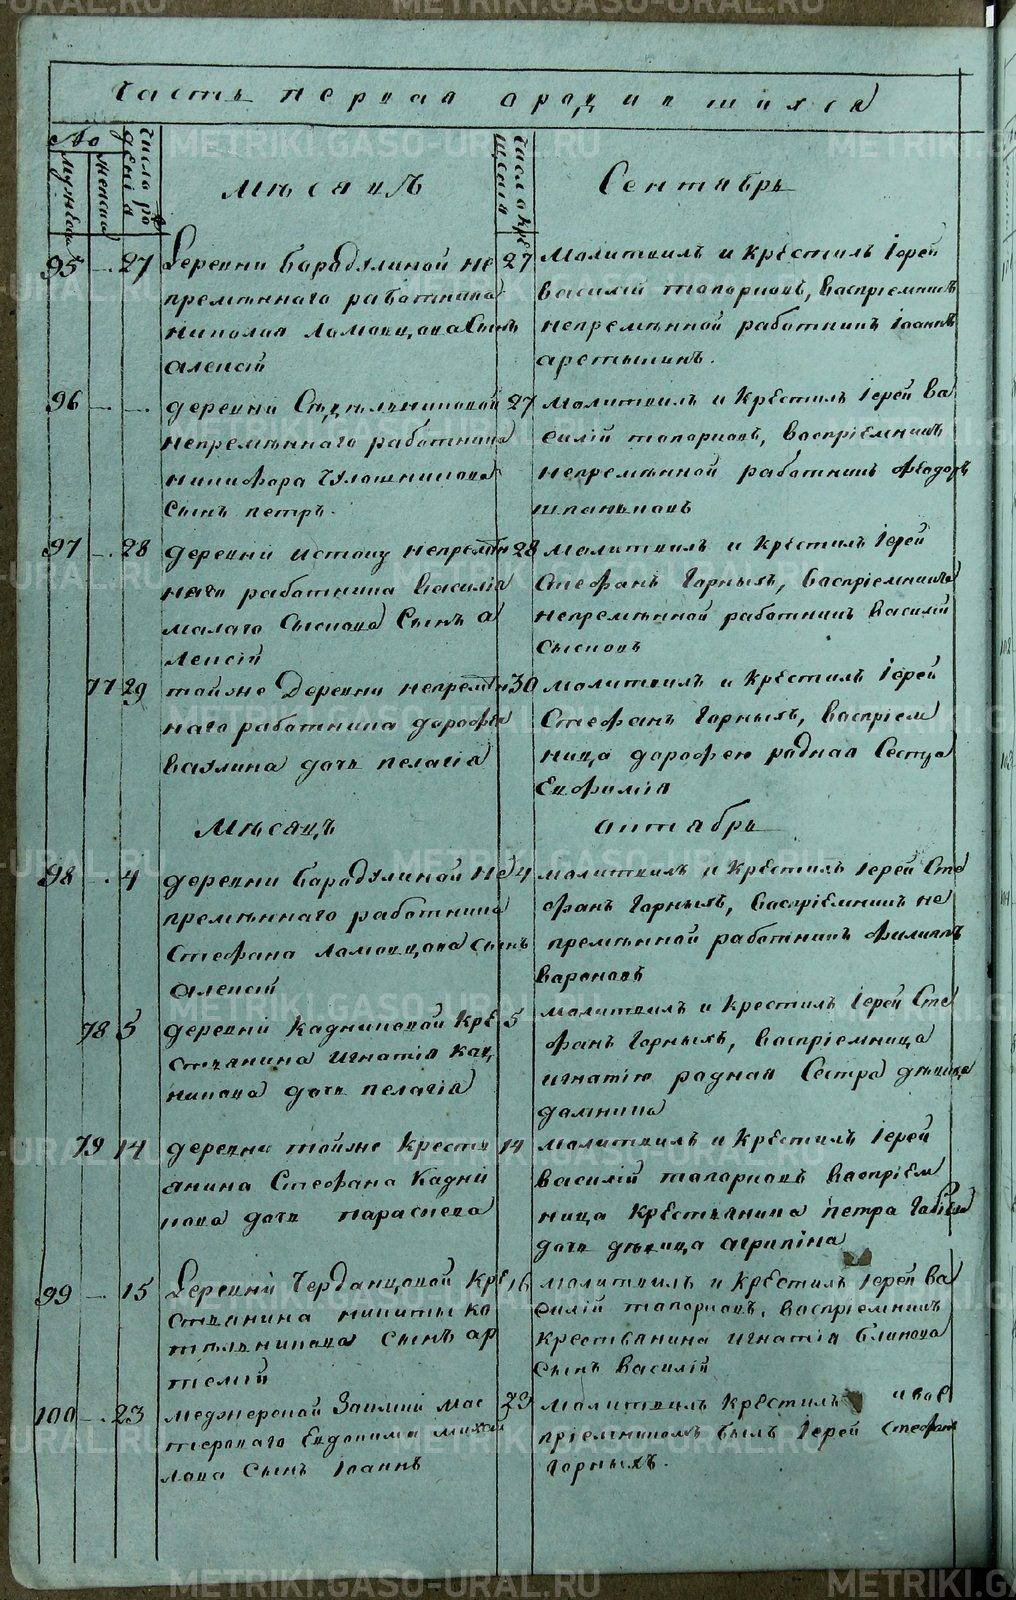 METRIKI.GASO-URAL.RU
Часть первая ородившихся
№
мужеска
женска
число рождения
число крещения
Мѣсяцъ Сентябрь
95 — 27 Деревни Барабулиной не
премѣннаго работника
Николая Ломовцова Сынъ
Алексій
27 Молитвилъ и Крестилъ Іерей
василій топорковъ, васпріемникъ
непремѣнной работникъ Іоаннъ
96 — — деревни Сѣдѣльниковой
непремѣннаго работника
никифора
Сынъ петръ.
27 Молитвилъ и Крестилъ Іерей ва
силій топорковъ, воспріемникъ
непремѣнной работникъ Феодоръ
97 — 28 деревни истоку непремѣн
наго работника василія
малаго Сыскова Сынъ а
лексій
28 Молитвилъ и Крестилъ Іерей
Стефанъ Горныхъ, васпріемникъ
непремѣнной работникъ василій
Сысковъ
77 29 тойже Деревни непремѣн
наго работника дорофея
ваулина дочь пелагія
30 Молитвилъ и Крестилъ Іерей
Стефанъ Горныхъ, васпріем
ница дорофею родная Сестра
Евфимія
Мѣсяцъ октябрь
98 — 4 деревни Барабулиной не
премѣннаго работника
Стефана Ломовцова сынъ
Алексій
4 молитвилъ и Крестилъ Іерей Сте
фанъ Горныхъ, васпріемникъ не
премѣнной работникъ филиппъ
вароновъ
78 5 деревни Кадниковой Кре
стьянина игнатія кад
никова дочь пелагія
5 молитвилъ и Крестилъ Іерей Сте
фанъ Горныхъ, васпріемница
игнатію родная Сестра дѣвица
домника
79 14 деревни тойже Кресть
янина Стефана Кадни
кова дочь параскева
14 молитвилъ и Крестилъ Іерей
василій топорковъ васпріем
ница Крестьянина петра
дочь дѣвица агрипіна
99 — 15 Деревни Черданцовой Кре
стьянина никиты ко
тѣльникова сынъ ар
темій
16 молитвилъ и Крестилъ Іерей ва
силій топорковъ, васпріемникъ
крестьянина игнатія блинова
Сынъ василій
100 — 23 Заимки мас
тероваго Евдокима михай
лова сынъ Іоаннъ
23 молитвилъ Крестилъ и вос
пріемникомъ былъ Іерей Стефанъ
Горныхъ.